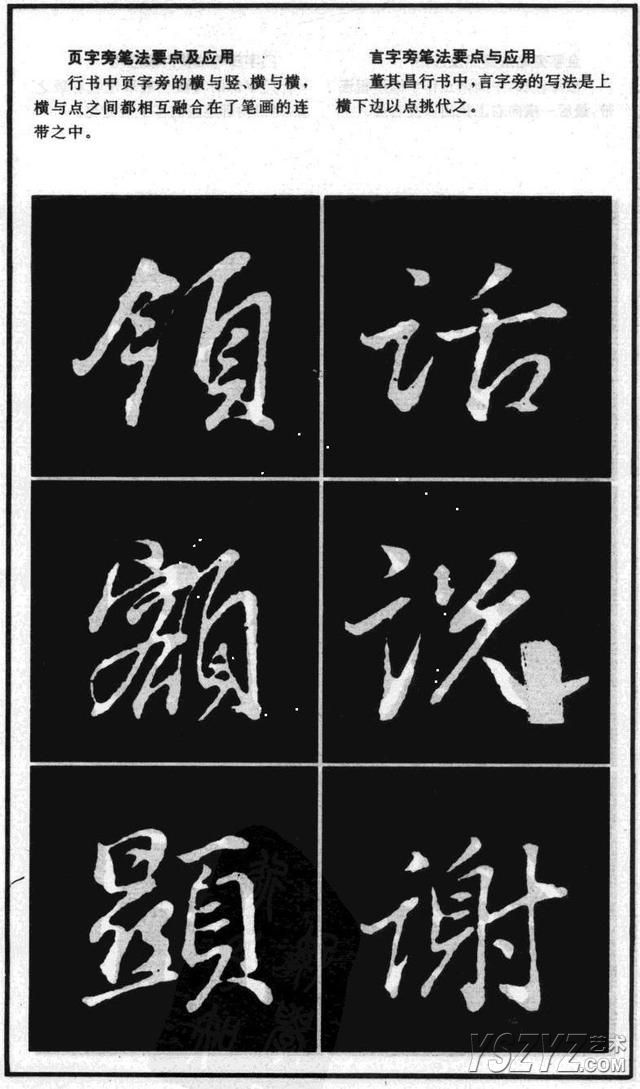 页字旁笔法要点及应用
行书中页字旁的横与竖、横与横，
横与点之间都相互融合在了笔画的连
带之中。
言字旁笔法要点与应用
董其昌行书中，言字旁的写法是上
横下边以点挑代之。
領 話
額 説
顯 謝
YSZYZ艺术
.COM